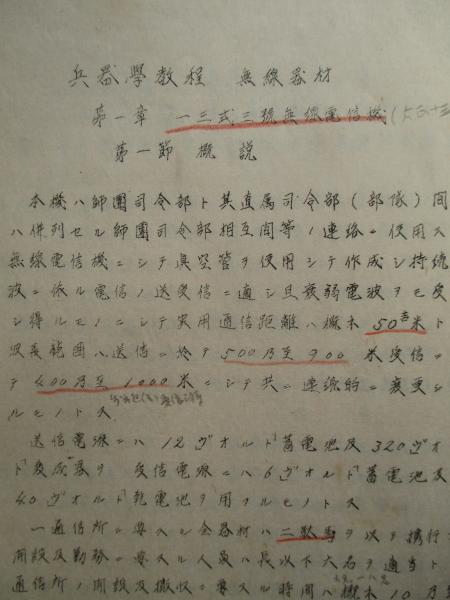 兵器學教程　無線器材
第一章　一三式三號無線電信機(大正十三
第一節　概説
本機ハ師團司令部ト其直属司令部(部隊)間
ハ併列セル師團司令部相互間等ノ連絡ニ使用ス
無線電信機ニシテ眞空管ヲ使用シテ作成シ持続
波ニ依ル電信ノ送受信ニ適シ且衰弱電波ヲモ受
シ得ルモノニシテ実用通信距離ハ概ネ50吉米ト
波長範囲ハ送信ニ於テ500乃至900米受信ニ
テ400乃至1000米ニシテ共ニ連続的ニ変更シ
ルモノトス
送信電源ニハ12ヴオルト蓄電池及320ヴオ
ト変成器ヲ　受信電源ニハ6ヴオルト蓄電池及
40ヴオルト乾電池ヲ用フルモノトス
一通信所ニ要スル全器材ハ二駄馬ヲ以テ携行
開設及勤務ニ要スル人員ハ長以下六名ヲ適当ト
通信所ノ開設及撤収ニ要スル時間ハ概ネ10乃至